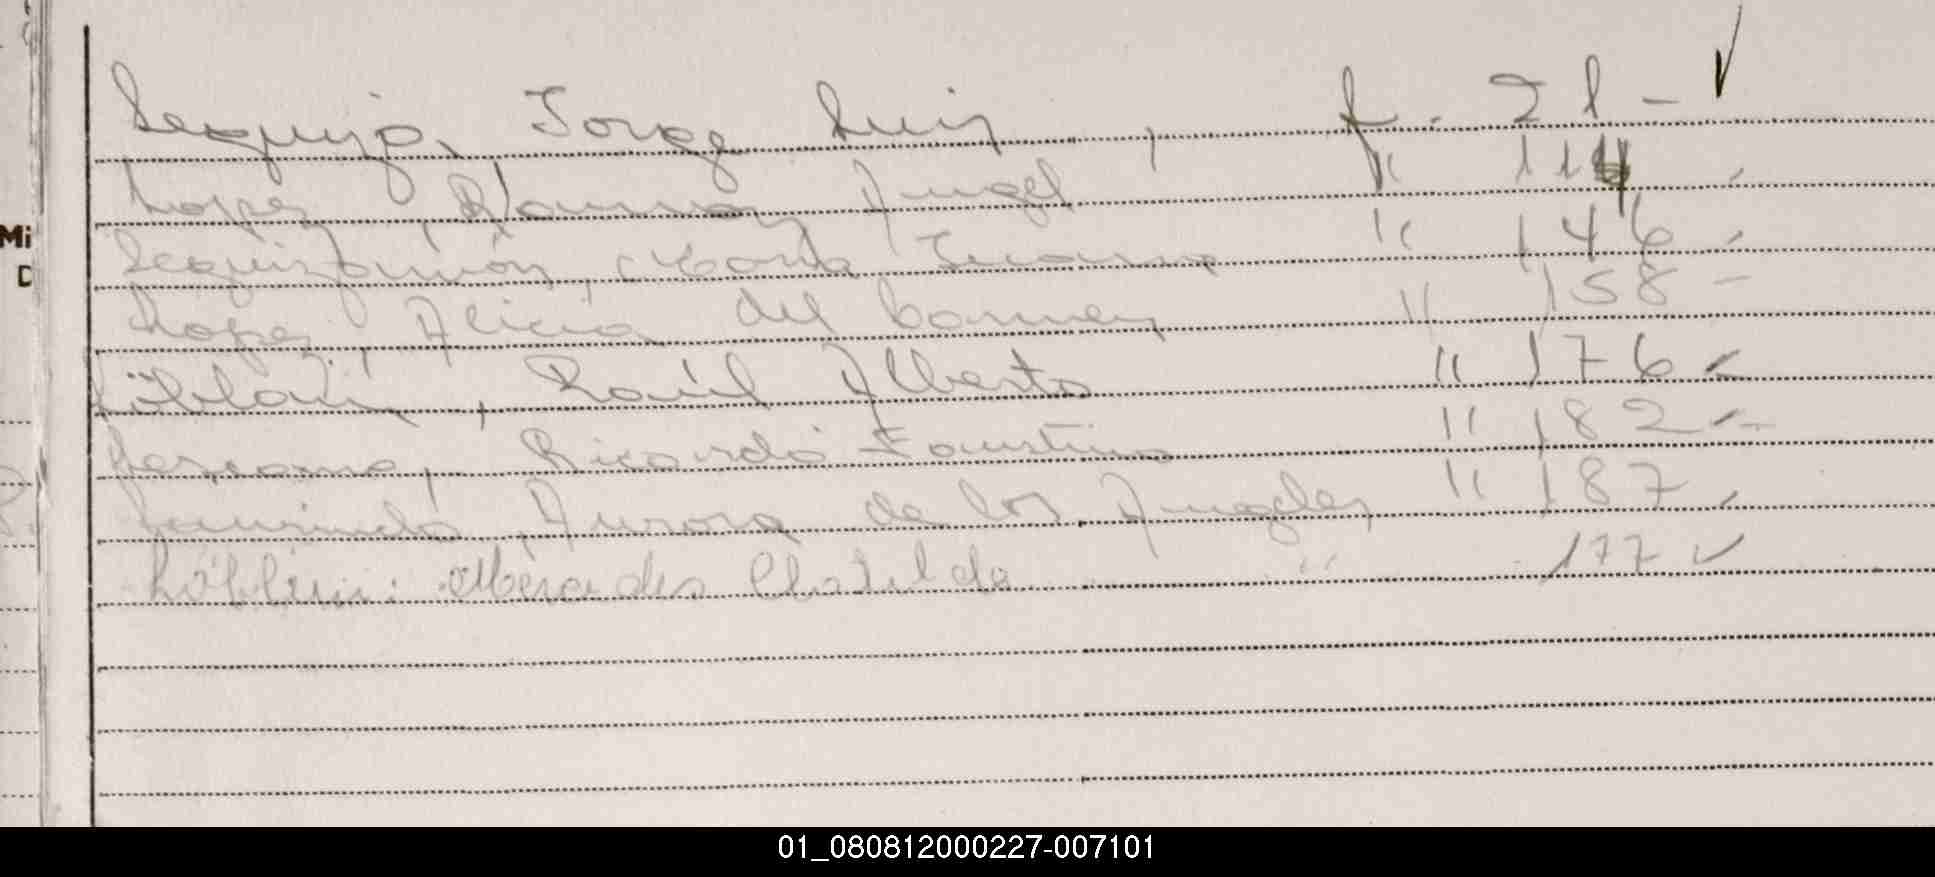 Lequizo, Jorge Luis, f. 21 -
Lopez, Ramon Angel " 114
Lequizamón, María " 146
Lopez, Alicia del Carmen " 158 -
Raúl Alberto " 176
Lezcano, Ricardo Faustino " 182
Laurindo, Aurora de los Angeles " 187
Mercedes Clotilde " 177
Mi
D
01_080812000227-007101